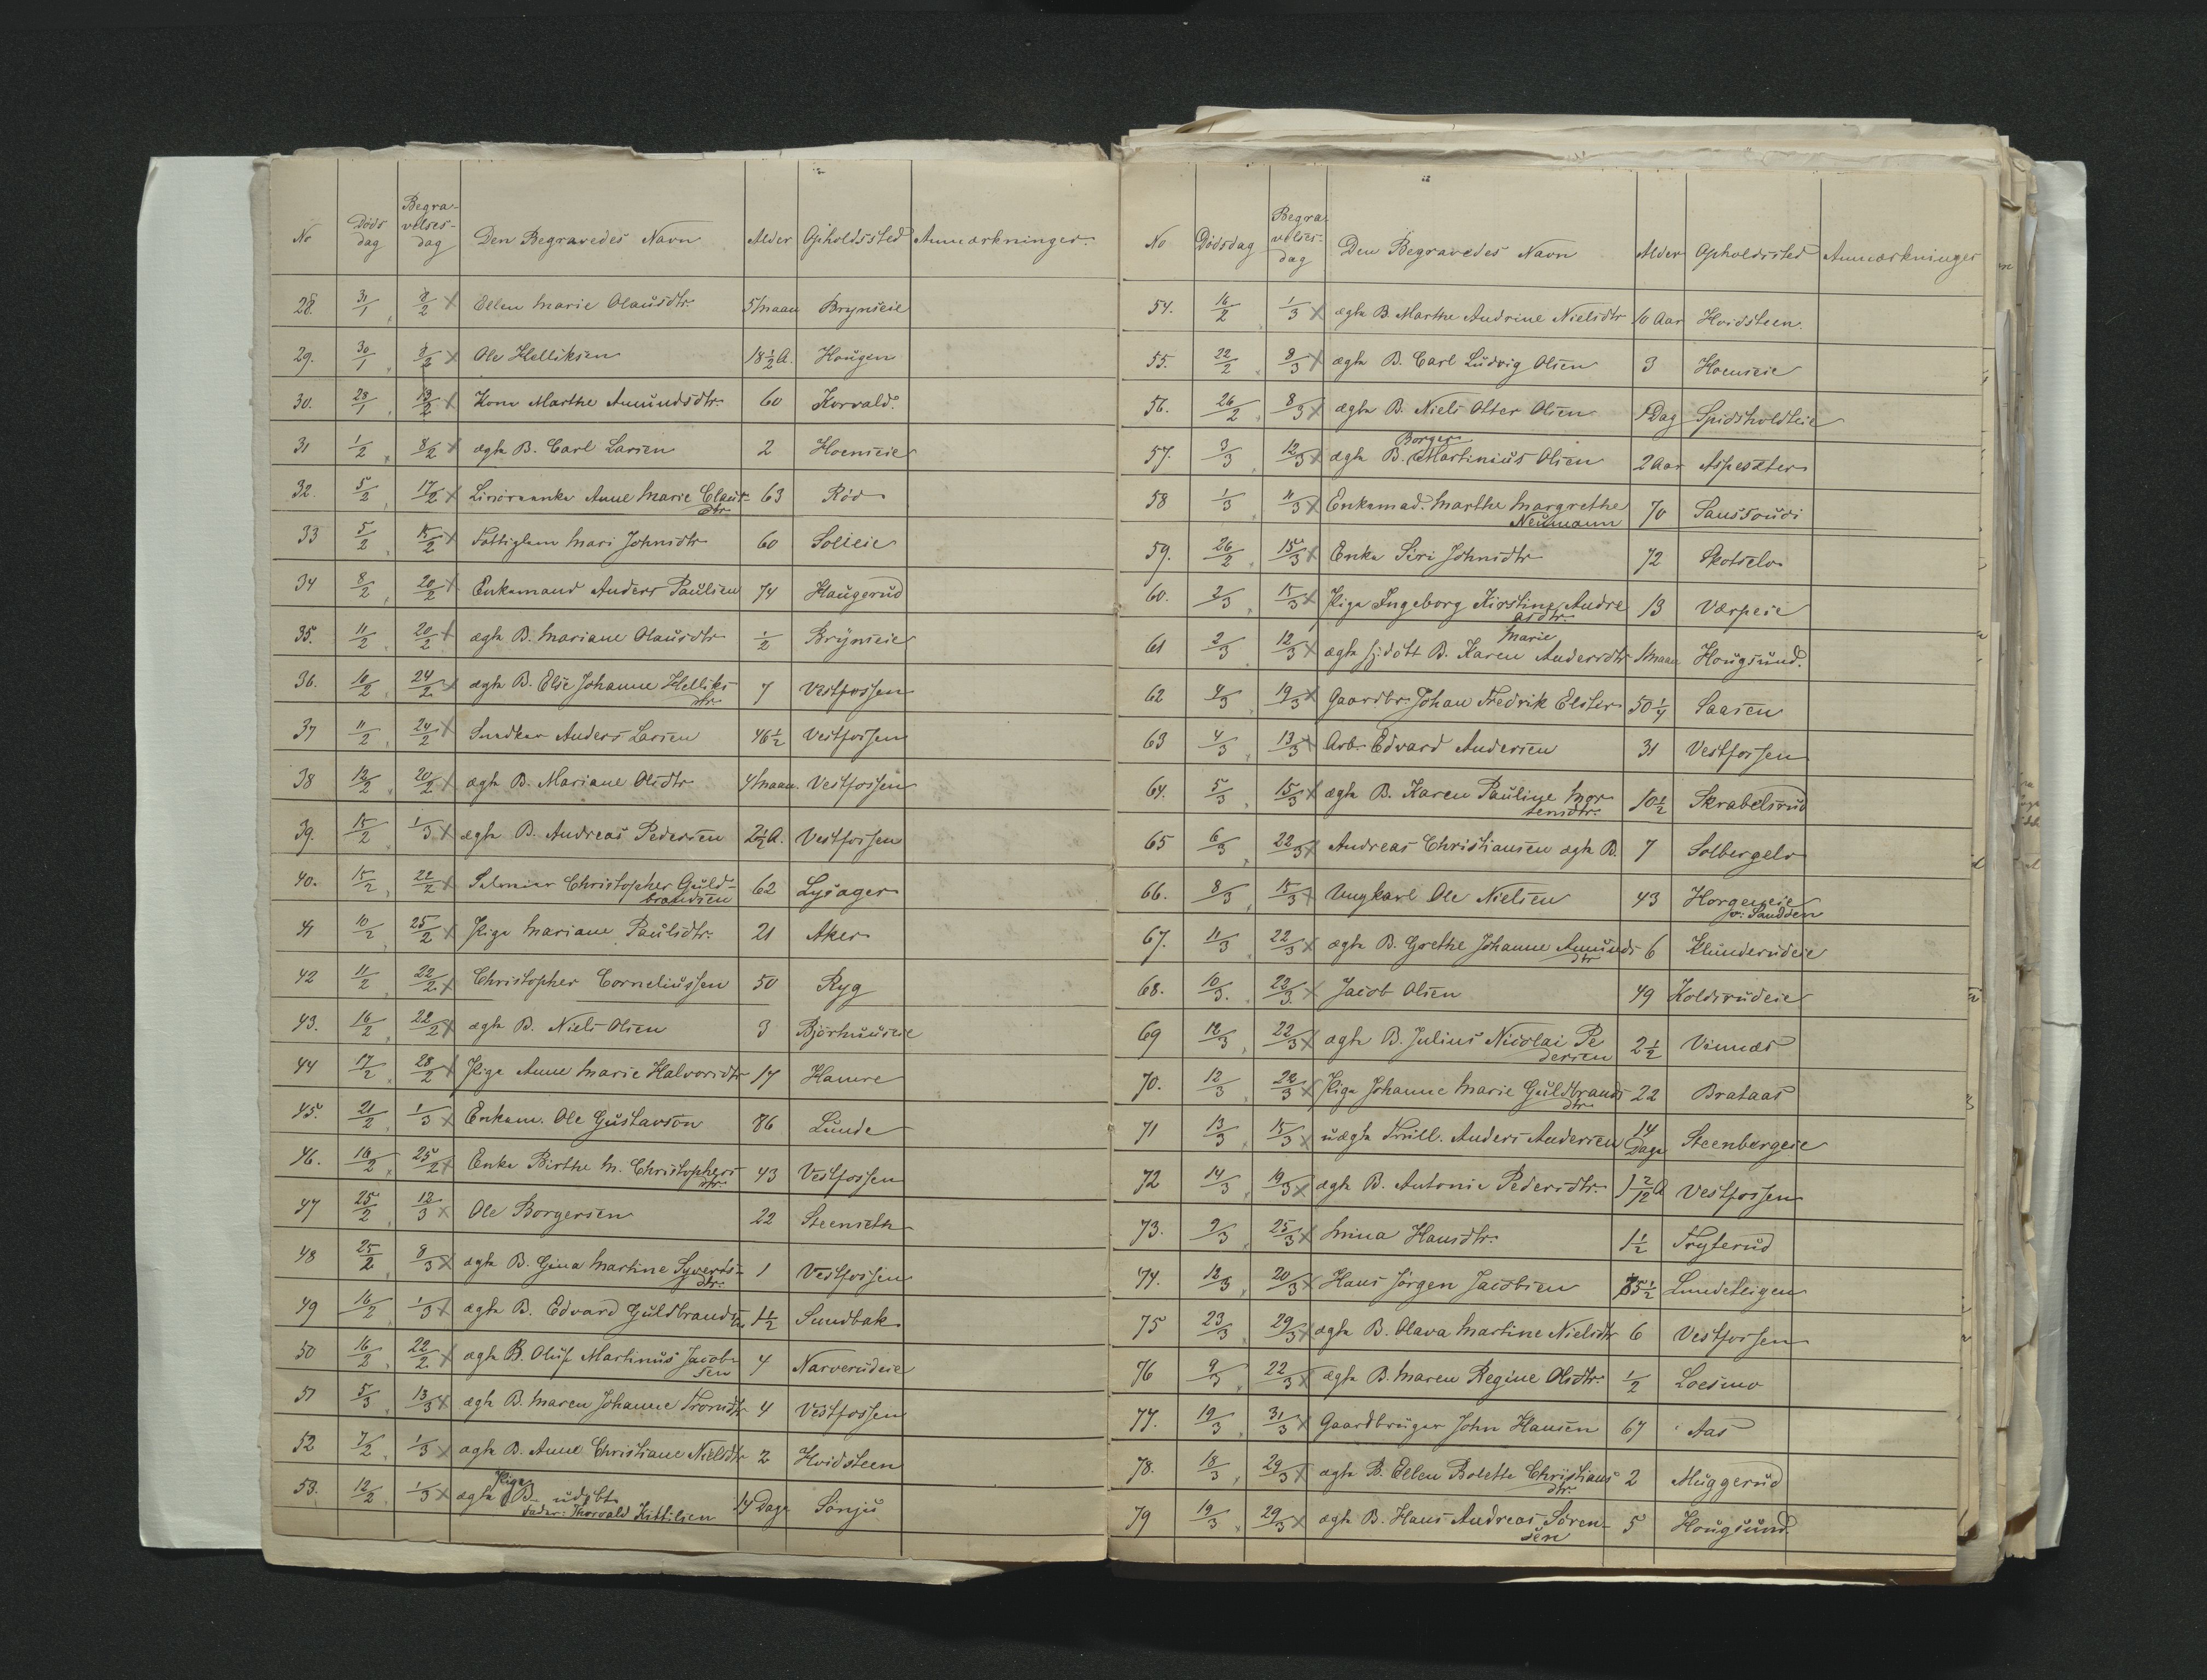 No Døds dag Begravelses-dag Den Begravedes Navn Alder Opholdssted Anmærkninger.
28. 31/1 8/2 x Ellen Marie Olausdtr. 5 Maan Brynseie
29. 30/1 8/2 x Ole Helliksen 18 1/2 A. Hougen
30. 28/1 13/2 x Kone Marthe Amundsdtr. 60 Korvald.
31 1/2 8/2 x ægte B. Carl Larsen 2 Hoenseie
32. 5/2 17/2 x Anne Marie Claus-
dtr. 63 Röd
33 5/2 15/2 x Fattiglem Mari Johnsdtr 60 Solieie
34 8/2 20/2 x Enkemand Anders Paulsen 74 Haugerud
35. 11/2 20/2 x ægte B. Mariane Olausdtr 1/2 Brynseie
36. 16/2 24/2 x ægte B. Else Johanne Helliks
dtr. 7 Vestfossen
37 11/2 24/2 x Snedker Anders Larsen 46 1/2 Vestfossen
38 12/2 20/2 x ægte B. Mariane Olsdtr 4 Maan. Vestfossen
39. 15/2 1/3 x ægte B. Andreas Pedersen 2 1/2 A. Vestfossen
40. 15/2 22/2 x Christopher Guld-
brandsen 62 Lysager
41 10/2 25/2 x Pige Mariane Paulsdtr. 21 Aker
42 11/2 22/2 x Christopher Corneliussen 50 Ryg
43. 16/2 22/2 x ægte B. Niels Olsen 3 Björhuuseie
44 17/2 28/2 x Pige Anne Marie Halvorsdtr 17 Hamre
45. 21/2 1/3 x Enkem. Ole Gustavson 86 Lunde
46. 16/2 25/2 x Enke Birthe M. Christophers
dtr. 43 Vestfossen
47 25/2 12/3 x Ole Borgersen 22 Steenseth
48 25/2 8/3 x ægte B. Gina Martine Syverts-
dtr. 1 Vestfossen
49 16/2 1/3 x ægte B. Edvard Guldbrandsen 1 1/2 Sundbak
50 16/2 22/2. x ægte B. Oluf Martinus Jacob-
sen 4 Narverudeie
51 5/3 13/3 x ægte B. Maren Johanne Tronsdtr 4 Vestfossen
52 7/2 1/3 x ægte B. Anne Christiane Nielsdtr 2 Hvidsteen
53. 12/2 1/3 x ægte Pige B. udøbt
Fader: Thorvald Kittilsen 14 Dage Sönju
No Dødsdag Begravelses-dag Den Begravedes Navn Alder Opholdssted Anmærkninger
54. 16/2 1/3 x ægte B. Marthe Andrine Nielsdtr 10 Aar Hvidsteen.
55. 22/2 8/3 x ægte B. Carl Ludvig Olsen 3 Hoenseie
56. 26/2 8/3 x ægte B. Niels Otter Olsen 1 Dag Spidsholdteie
57. 3/3 12/3 x ægte B. Borger Martinius Olsen 2 Aar Aspesæter
58 1/3 11/3 x Enkemad. Marthe Margrethe
Neumann 70 Sanssouci
59. 26/2 15/3 x Enke Siri Johnsdtr 72 Skotselv
60. 2/3 15/3 x Pige Ingeborg Kirstine Andre
asdtr. 13 Værpeie
61 2/3 12/3 x ægte hj.døbt B. Karen Marie Andersdtr 1 Maan Hougsund.
62 4/3 19/3 x Gaardbr. Johan Fredrik Elster 50 1/4 Saasen
63 4/3 13/3 x Arb. Edvard Andersen 31 Vestfossen
64. 5/3 15/3 x ægte B. Karen Pauline Mor
tensdtr. 10 1/2 Skrabelsrud
65 6/3 22/3 x Andreas Christiansen ægte B. 7 Solbergelv
66. 8/3 15/3 x Ungkarl Ole Nielsen 43 Horgeneie
p: Sandden
67. 11/3 22/3 x ægte B. Grethe Johanne Amunds
dtr 6 Klunderudeie
68. 10/3. 22/3. x Jacob Olsen 49 Koldsrudeie
69 12/3 22/3 x ægte B. Julius Nicolai Pe
dersen 2 1/2 Vinnæs
70. 12/3 22/3 x Pige Johanne Marie Guldbrands
dtr 22 Brataas
71 13/3 15/3 x uægte Tvill. Anders Andersen 14 Dage Steenbergeie
72 14/3 19/3 x ægte B. Antonie Pedersdtr. 1 2/12 A Vestfossen
73. 9/3 25/3 x Mina Hansdtr. 1 1/2 Fryserud
74. 12/3 20/3 x Hans Jørgen Jacobsen 75 1/2 Lundeteigen
75 23/3 29/3 x ægte B. Olava Martine Nielsdtr 6 Vestfossen
76 9/3 22/3 x ægte B. Maren Regine Olsdtr. 1/2 Loesmo
77. 19/3 31/3 x Gaardbruger John Hansen 67 Aas
78. 18/3 29/3 x ægte B. Ellen Bolette Christians
dtr. 2 Muggerud
79 19/3 29/3 x ægte B. Hans Andreas Sören-
sen 5 Hougsund.